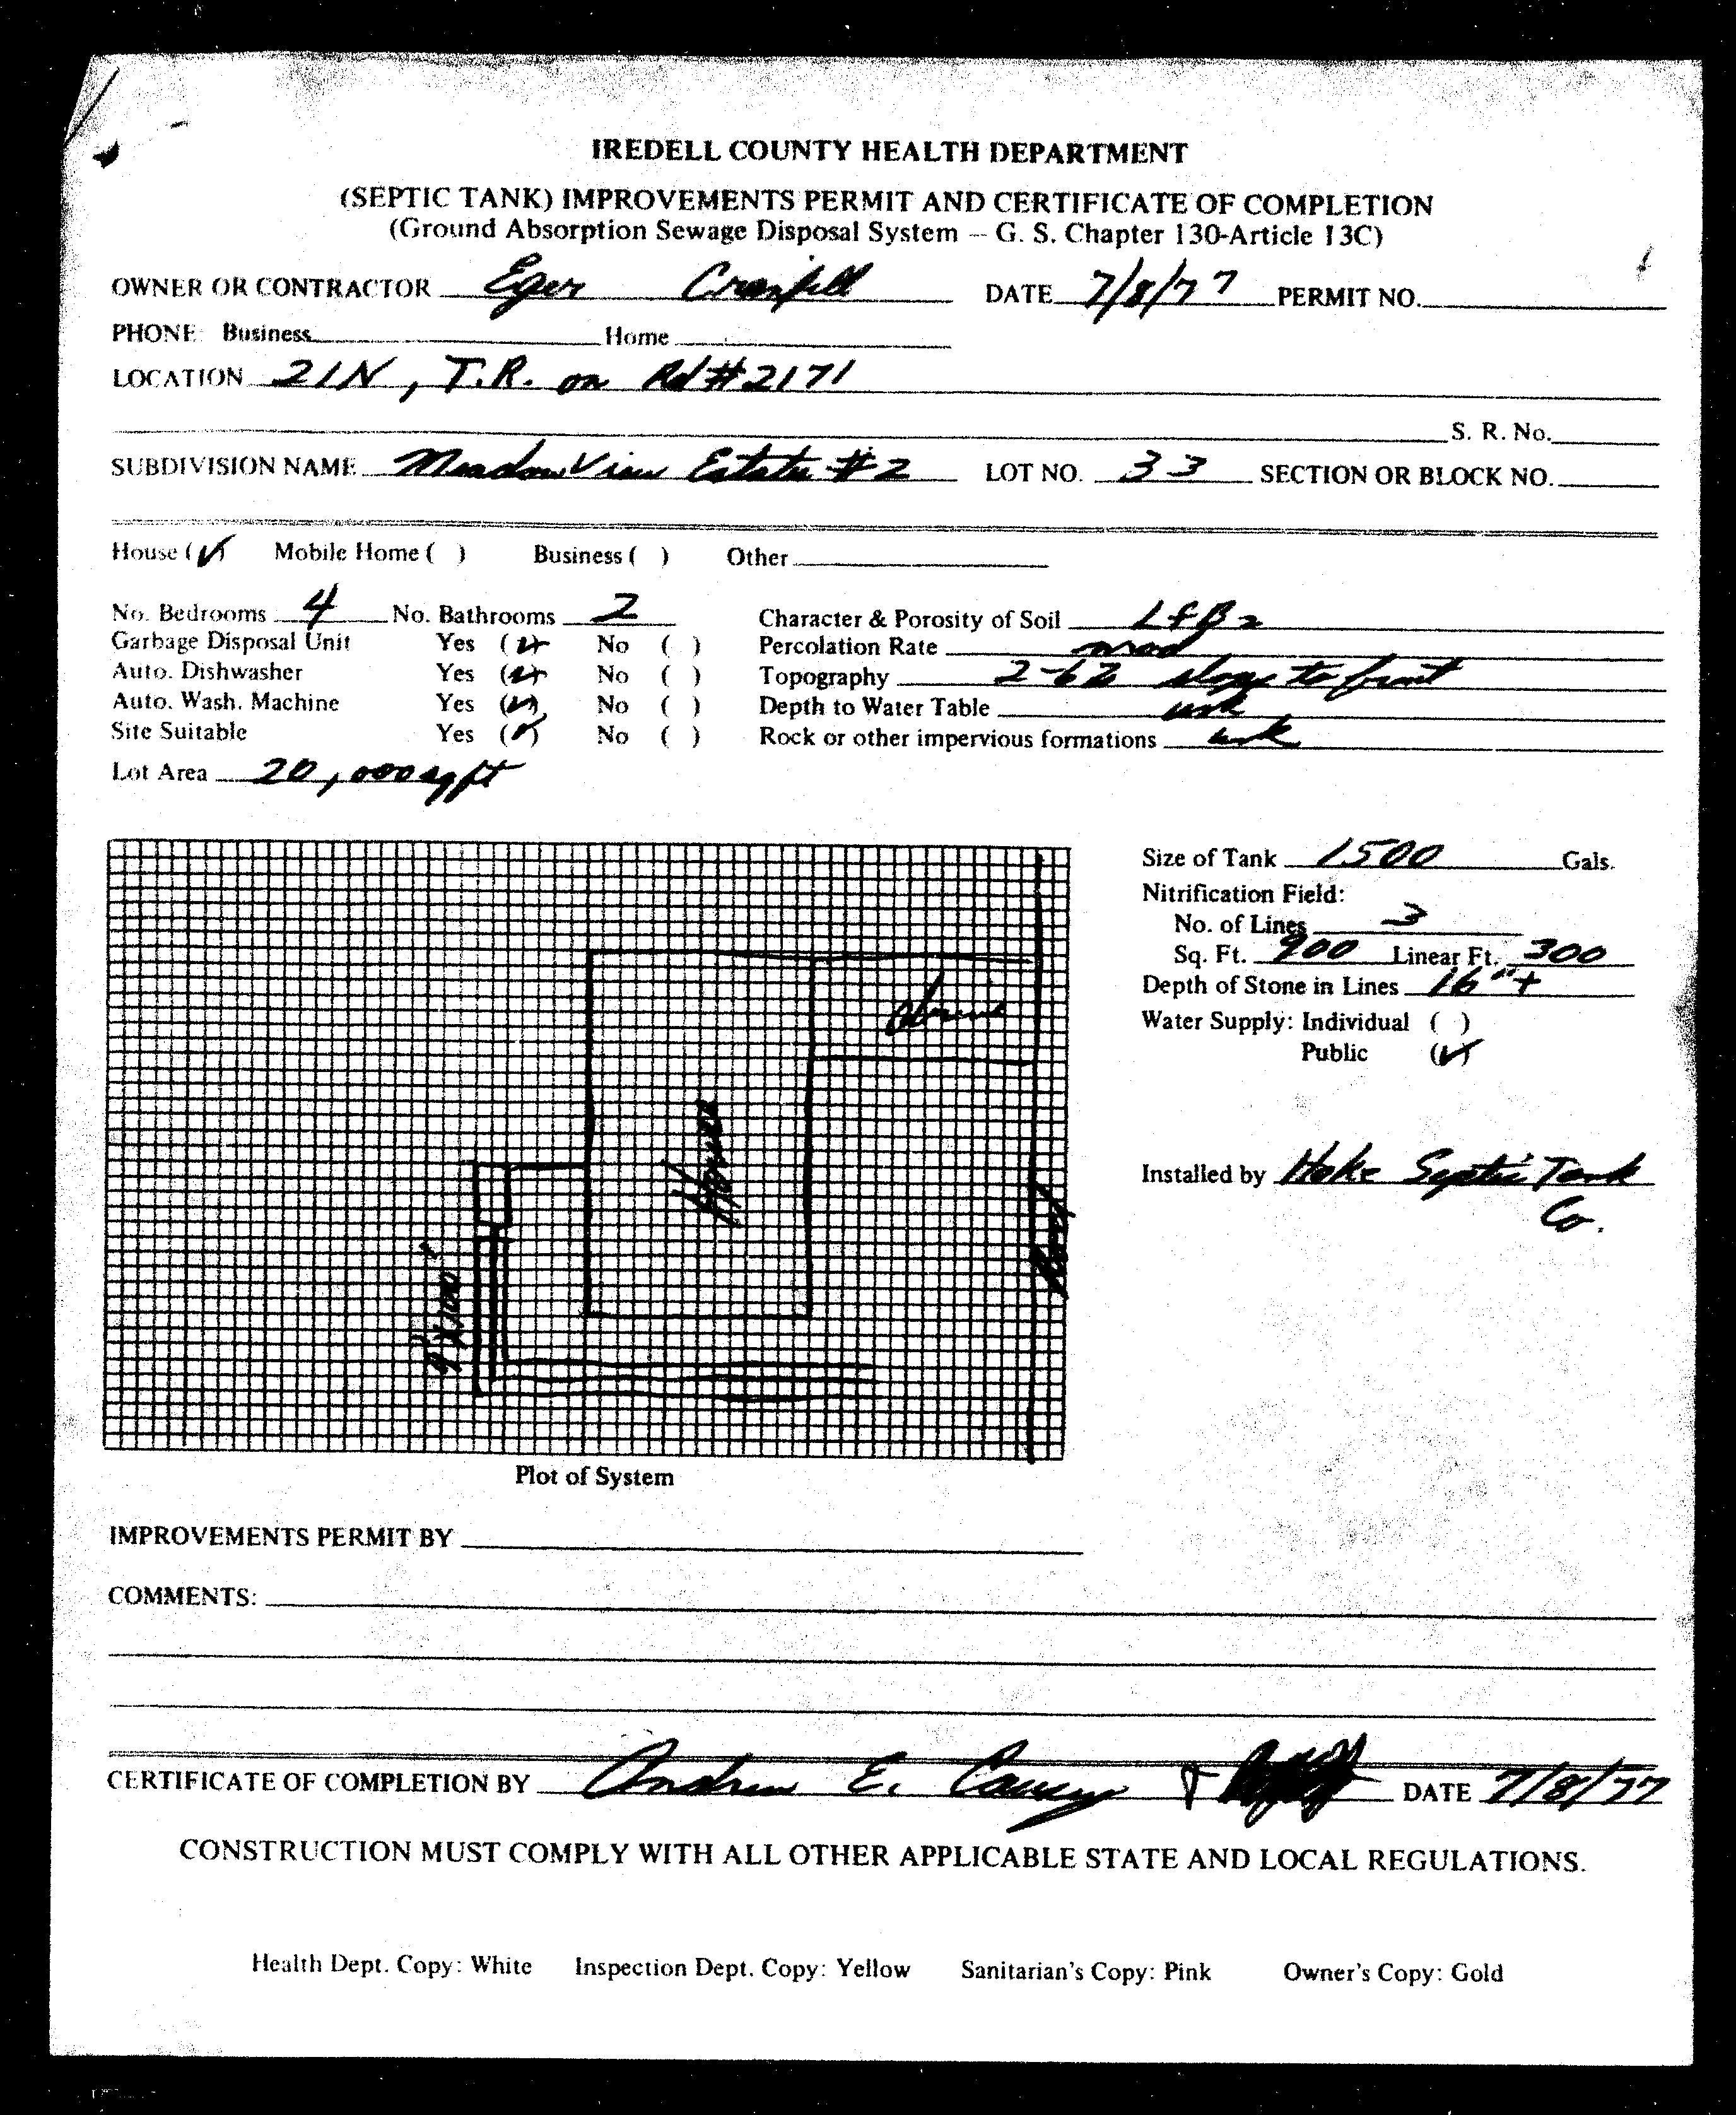 IREDELL COUNTY HEALTH DEPARTMENT
(SEPTIC TANK) IMPROVEMENTS PERMIT AND CERTIFICATE OF COMPLETION
(Ground Absorption Sewage Disposal System -- G. S. Chapter 130-Article 13C)
OWNER OR CONTRACTOR DATE 7/8/77 PERMIT NO.
PHONE: Business Home
LOCATION 21N, T.R. on Rd #2171
S. R. No.
SUBDIVISION NAME Meadow View Estates #2 LOT NO. 33 SECTION OR BLOCK NO.
House (✓) Mobile Home ( ) Business ( ) Other
No. Bedrooms 4 No. Bathrooms 2 Character & Porosity of Soil
Garbage Disposal Unit Yes (✓) No ( ) Percolation Rate mod
Auto. Dishwasher Yes (✓) No ( ) Topography 2-6% slope to front
Auto. Wash. Machine Yes (✓) No ( ) Depth to Water Table unk
Site Suitable Yes (✓) No ( ) Rock or other impervious formations unk
Lot Area 20,000 sq ft
Size of Tank 1500 Gals.
Nitrification Field:
No. of Lines 3
Sq. Ft. 900 Linear Ft. 300
Depth of Stone in Lines 16"+
Water Supply: Individual ( )
Public (✓)
Installed by Hoke Septic Tank
Co.
House
Road
Plot of System
IMPROVEMENTS PERMIT BY
COMMENTS:
CERTIFICATE OF COMPLETION BY Andrew E. DATE 7/8/77
CONSTRUCTION MUST COMPLY WITH ALL OTHER APPLICABLE STATE AND LOCAL REGULATIONS.
Health Dept. Copy: White Inspection Dept. Copy: Yellow Sanitarian's Copy: Pink Owner's Copy: Gold